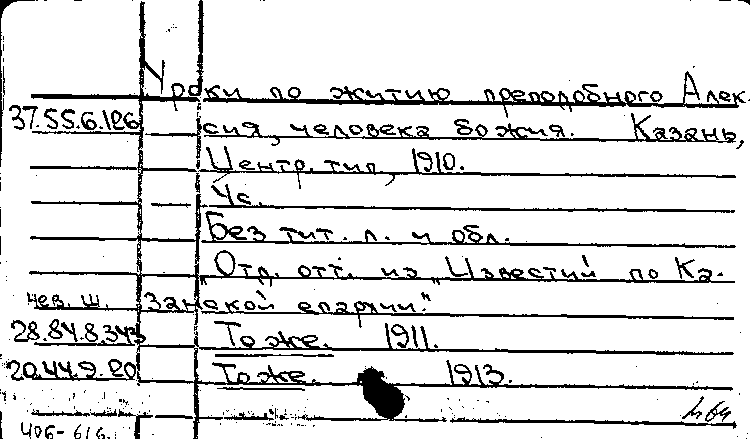 Уроки по житию преподобного Алек-
37.55.6.126 сия, человека божия. Казань,
Центр. тип, 1910.
4с.
Без тит. л. и обл.
"Отд. отт. из "Известий по Ка-
нев. ш. занской епархии."
28.84.8.343 То же. 1911.
20.44.9.20 То же. 1913.
406-616.